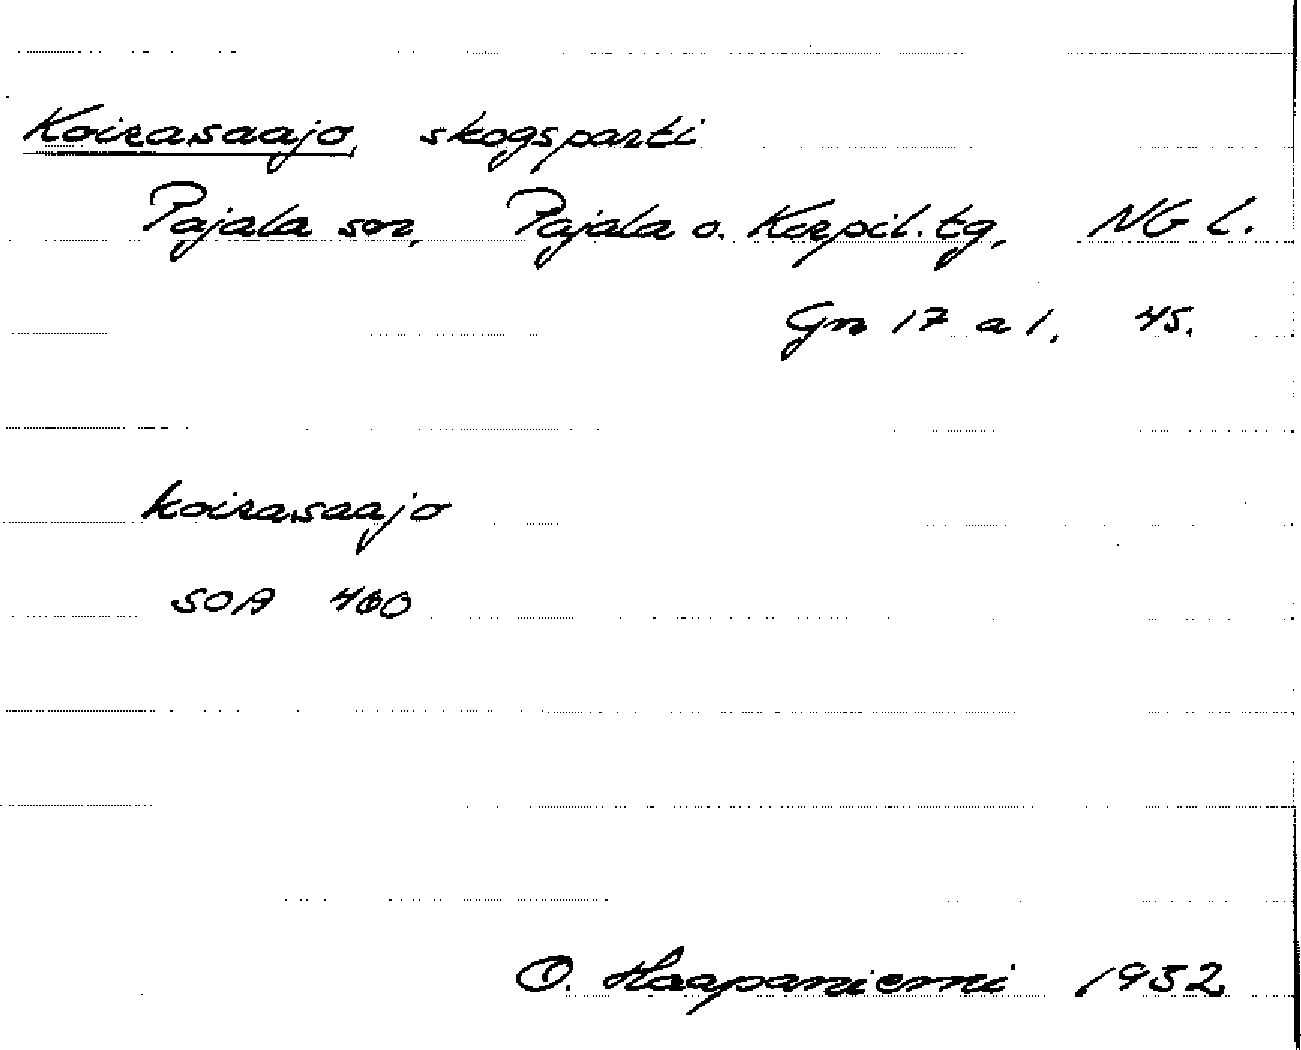 Koirasaajo, skogsparti
Pajala sn, Pajala o. Korpil. tg, NG l.
Gn 17 a 1. 45.
koirasaajo
SOA 400
O. Haapaniemi 1932